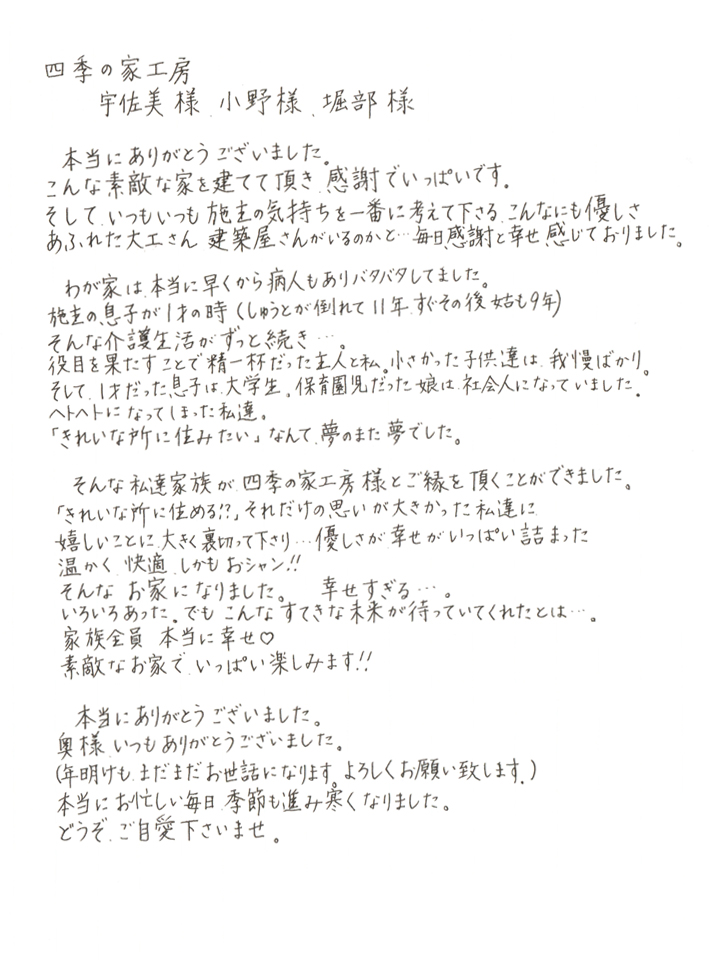 四季の家工房
宇佐美様、小野様、堀部様
本当にありがとうございました。
こんな素敵な家を建てて頂き、感謝でいっぱいです。
そして、いつもいつも施主の気持ちを一番に考えて下さる、こんなにも優しさ
あふれた大工さん、建築屋さんがいるのかと…毎日感謝と幸せ感じておりました。
わが家は、本当に早くから病人もありバタバタしてました。
施主の息子が1才の時(しゅうとが倒れて11年、すぐその後姑も9年)
そんな介護生活がずっと続き…。
役目を果たすことで精一杯だった主人と私。小さかった子供達は、我慢ばかり。
そして、1才だった息子は、大学生。保育園児だった娘は、社会人になっていました。
ヘトヘトになってしまった私達。
「きれいな所に住みたい」なんて、夢のまた夢でした。
そんな私達家族が、四季の家工房様とご縁を頂くことができました。
「きれいな所に住める!?」それだけの思いが大きかった私達に
嬉しいことに、大きく裏切って下さり…優しさが幸せがいっぱい詰まった
温かく、快適、しかもおシャン!!
そんな お家になりました。 幸せすぎる…。
いろいろあった。でも こんなすてきな未来が待っていてくれたとは…。
家族全員 本当に幸せ♡
素敵なお家で、いっぱい楽しみます!!
本当にありがとうございました。
奥様、いつもありがとうございました。
(年明けも、まだまだお世話になります。よろしくお願い致します。)
本当にお忙しい毎日、季節も進み寒くなりました。
どうぞ、ご自愛下さいませ。